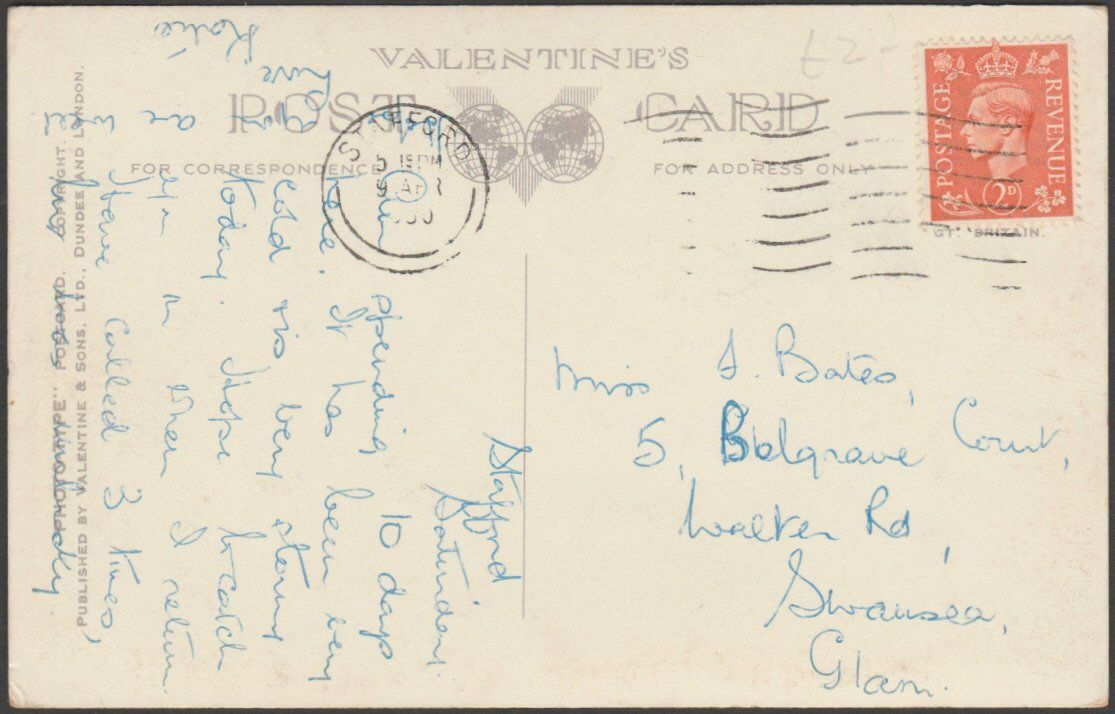 VALENTINE'S
POST CARD
FOR CORRESPONDENCE
FOR ADDRESS ONLY
£2-
POSTAGE REVENUE
2D
GT. BRITAIN.
STAFFORD
5 15 PM
Miss J. Bates,
5, Belgrave Court,
Walter Rd,
Swansea,
Glam.
Stafford
Saturday.
spending 10 days
here. It has been very
cold & is very stormy
today. Hope to catch
you in when I return.
Have called 3 times,
"PHOTOTYPE" POSTCARD. COPYRIGHT.
PUBLISHED BY VALENTINE & SONS, LTD., DUNDEE AND LONDON.